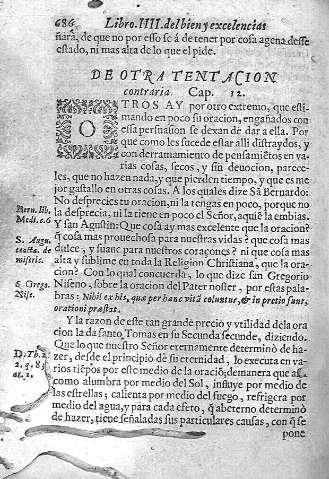 686 Libro. IIII. del bien y excelencias
ñará, de que no por esso se á de tener por cosa agena desse
estado, ni mas alta de lo que el pide.
DE OTRA TENTACION
contraria. Cap. 12.
OTROS AY por otro extremo, que esti-
mando en poco su oracion, engañados con
essa persuasion se dexan de dar a ella. Por
que como les sucede estar alli distraydos, y
con derramamiento de pensamiẽtos en va-
rias cosas, secos, y sin deuocion, parece-
les, que no hazen nada, y que pierden tiempo, y que es me-
jor gastallo en otras cosas. A los quales dize Sã Bernardo:
Bern. lib. No desprecies tu oracion, ni la tengas en poco, porque no
Medi. c. 6 la desprecia, ni la tiene en poco el Señor, aquié la embias.
Y san Agustin: Que cosa ay mas excelente que la oracion?
S. Augu. q̃ cosa mas prouechosa para nuestras vidas? que cosa mas
tracta. de dulce, y suaue para nuestros coraçones? ni que cosa mas
miseric. alta y sublime en toda la Religion Christiana, que la ora-
cion? Con lo qual concuerda, lo que dize san Gregorio
S. Grego. Niseno, sobre la oracion del Pater noster, por estas pala-
Niss. bras: Nihil ex his, quæ per hanc vitã coluntur, & in pretio sunt,
orationi præstat.
Y la razon de este tan grande precio y vtilidad de la ora
cion la da santo Tomas en su Secunda secundæ, diziendo.
Que lo que nuestro Señor eternamente determinò de ha-
D. Th. 2. zer, desde el principio dẽ su eternidad, lo executa en va-
2. q. 83 rios tiẽpos por este medio de la oraciõ; demanera que assi
ar. 2. como alumbra por medio del Sol, influye por medio de
las estrellas; calienta por medio del fuego, refrigera por
medio del agua, y para cada efeto, q̃ abeterno determinò
de hazer, tiene señaladas sus particulares causas, con q̃ se
pone